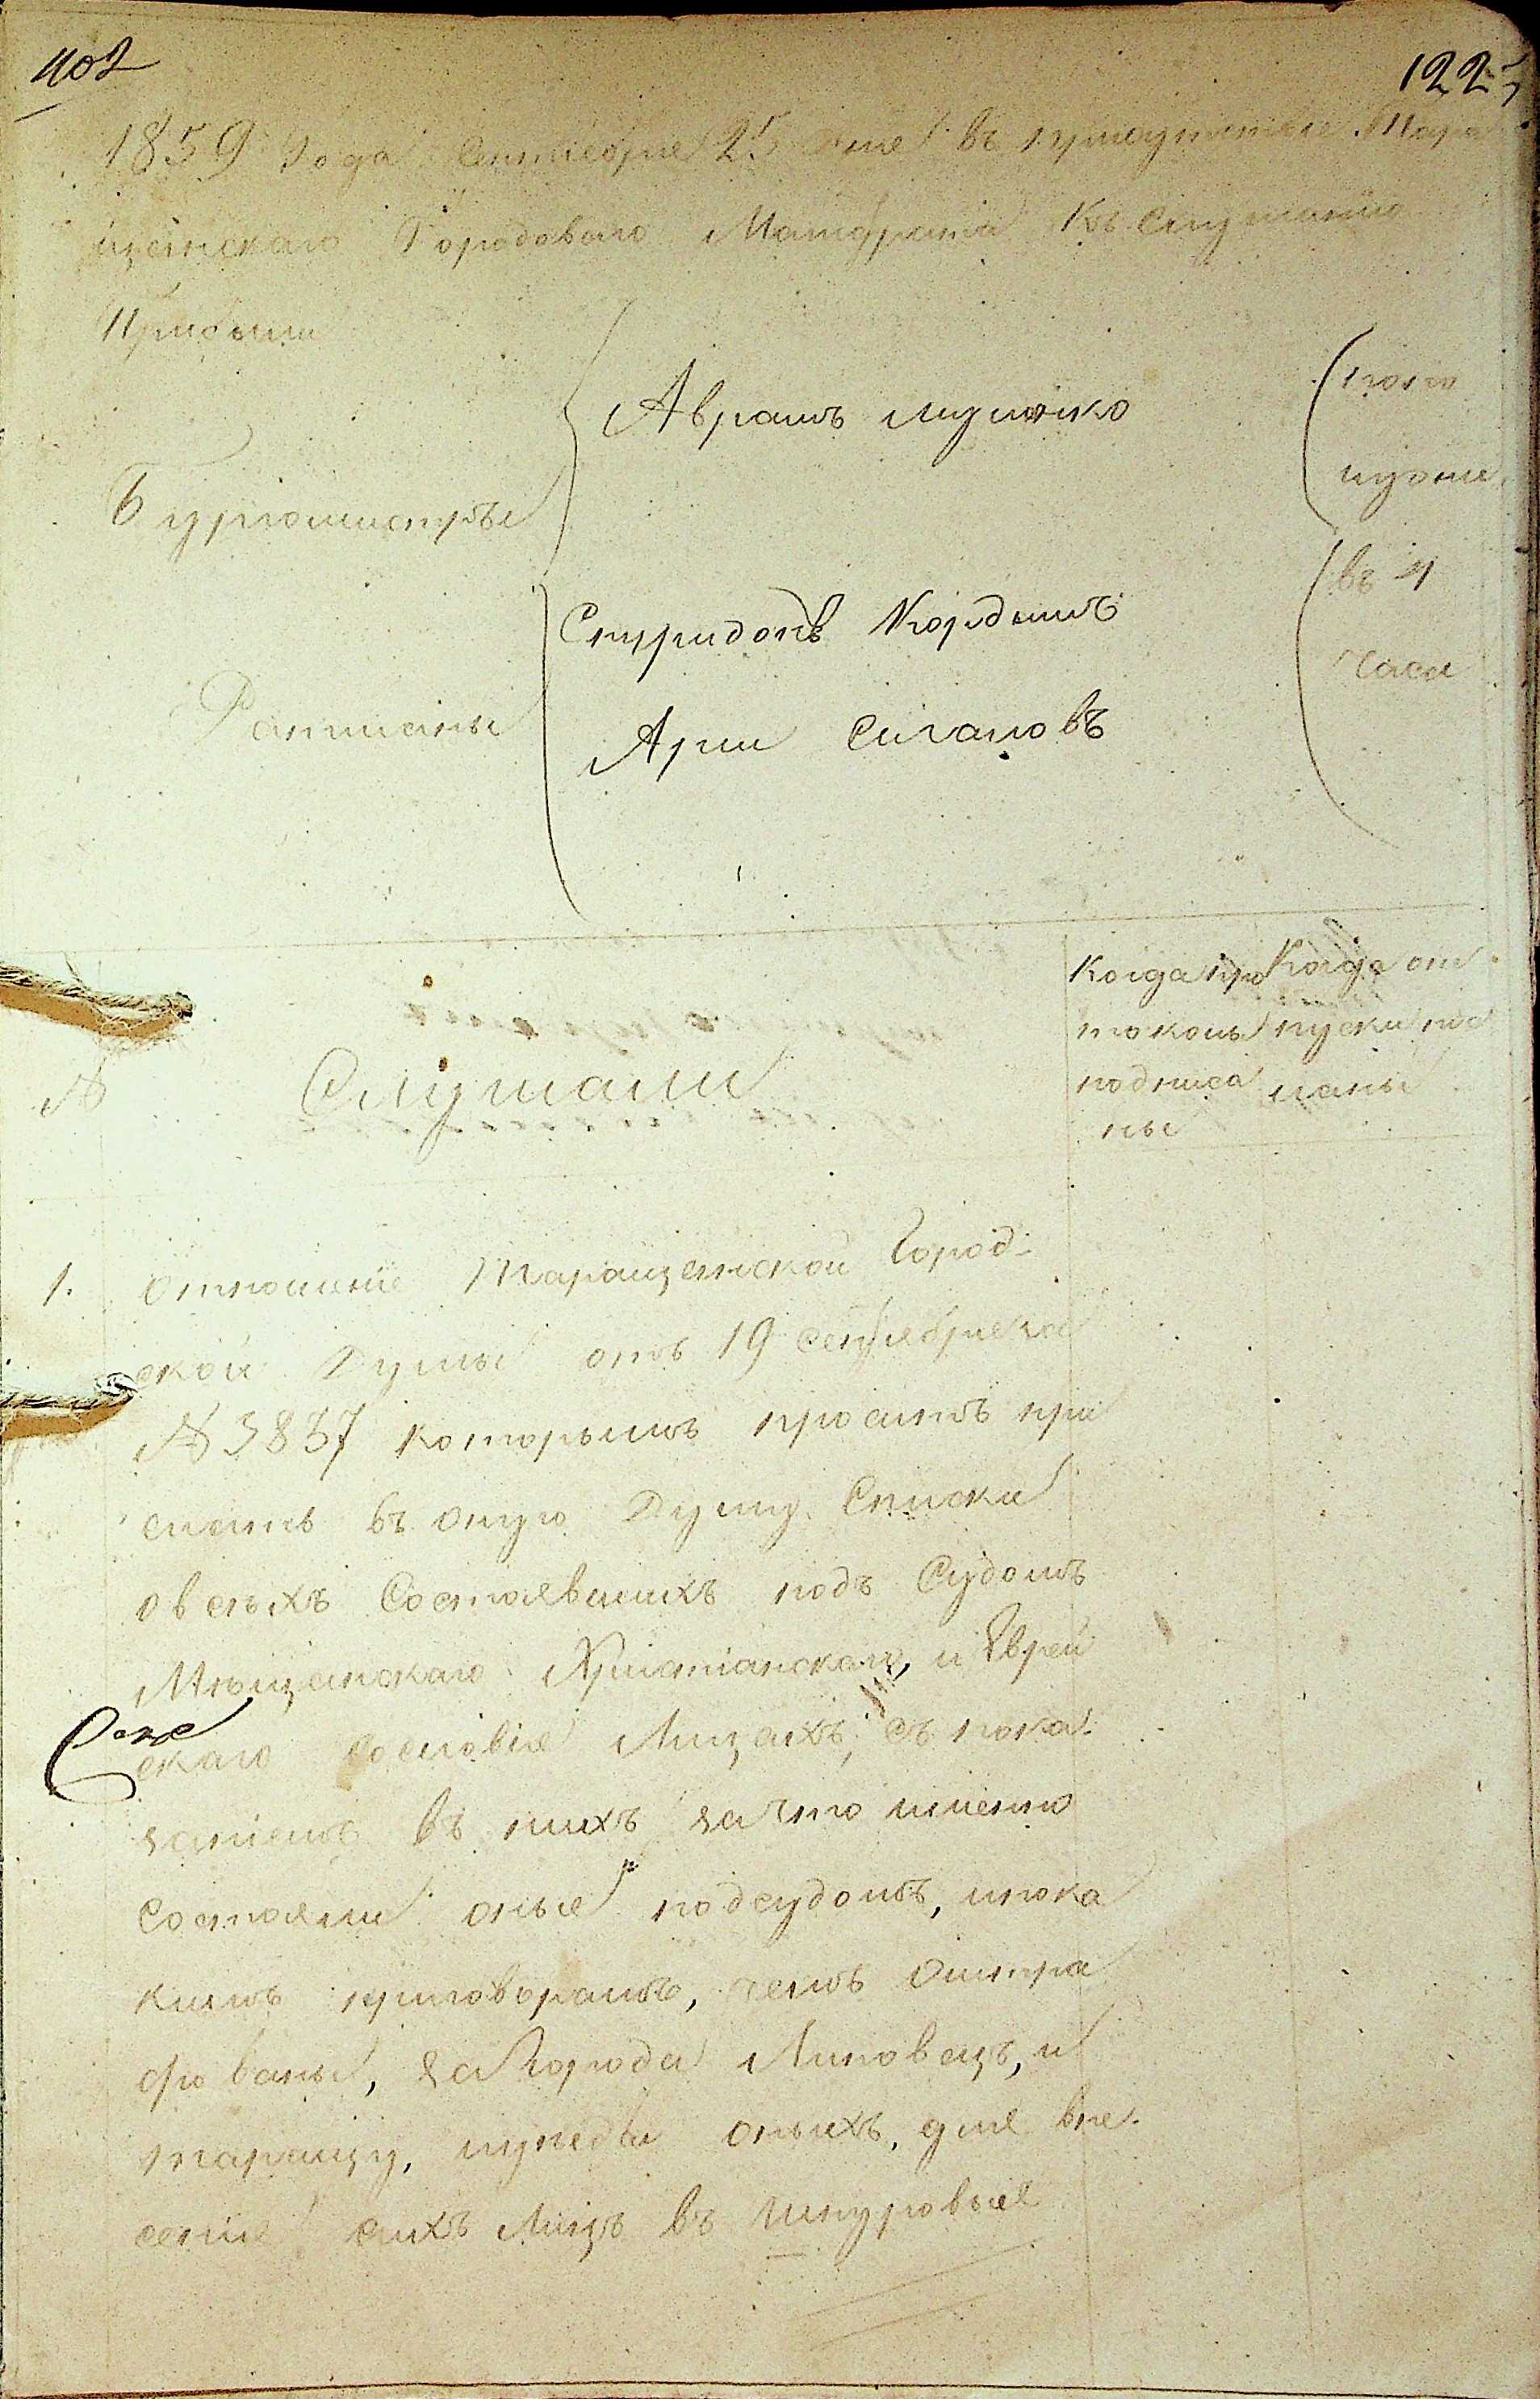 402
122
1859 Года Сентября 25 дня въ присутствіе Тара
щанскаго Городоваго Магистрата Къ Слушанію
Прибыли
Бургомистры
Аврамъ
пополудни
Ратманы
Спиридонъ Кордышъ
Арии Сигаловъ
въ 4
часа
№
Слушали
Когда про
токолы
подписа
ны
Когда от
пуски пос
ланы
1. отношеніе Таращанской Город-
ской Думы отъ 19 сентября за
№ 3837 которымъ проситъ при
слать въ оную Думу Списки
о всѣхъ Состоявшихъ подъ Судомъ
Мѣщанскаго Христіанскаго, и Еврей
скаго сословія Лицахъ, съ пока-
заніемъ въ нихъ за что именно
состояли оные подсудомъ, и по ка
кимъ приговорамъ, чемъ Оштра
фованы, за Города Липовецъ, и
Таращу, и уѣзды оныхъ, для вне-
сенія сихъ Лицъ въ Шнуровые